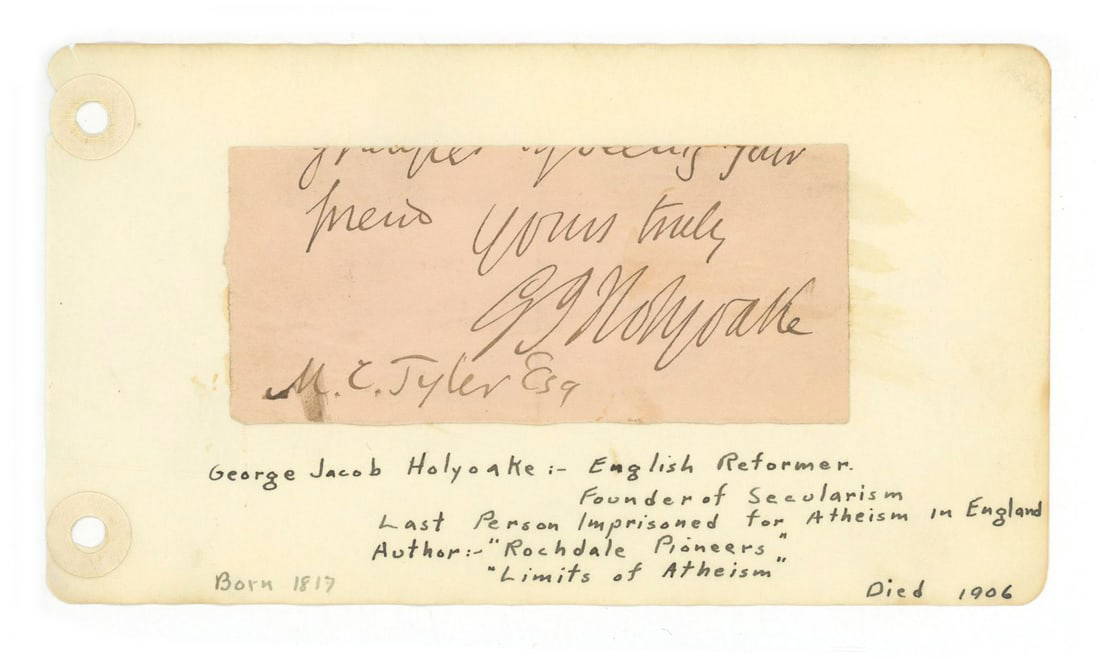 friend yours truly
GJHolyoake
M. C. Tyler Esq
George Jacob Holyoake :- English Reformer.
Founder of Secularism
Last Person Imprisoned for Atheism in England
Author:- "Rochdale Pioneers"
"Limits of Atheism"
Born 1817
Died 1906